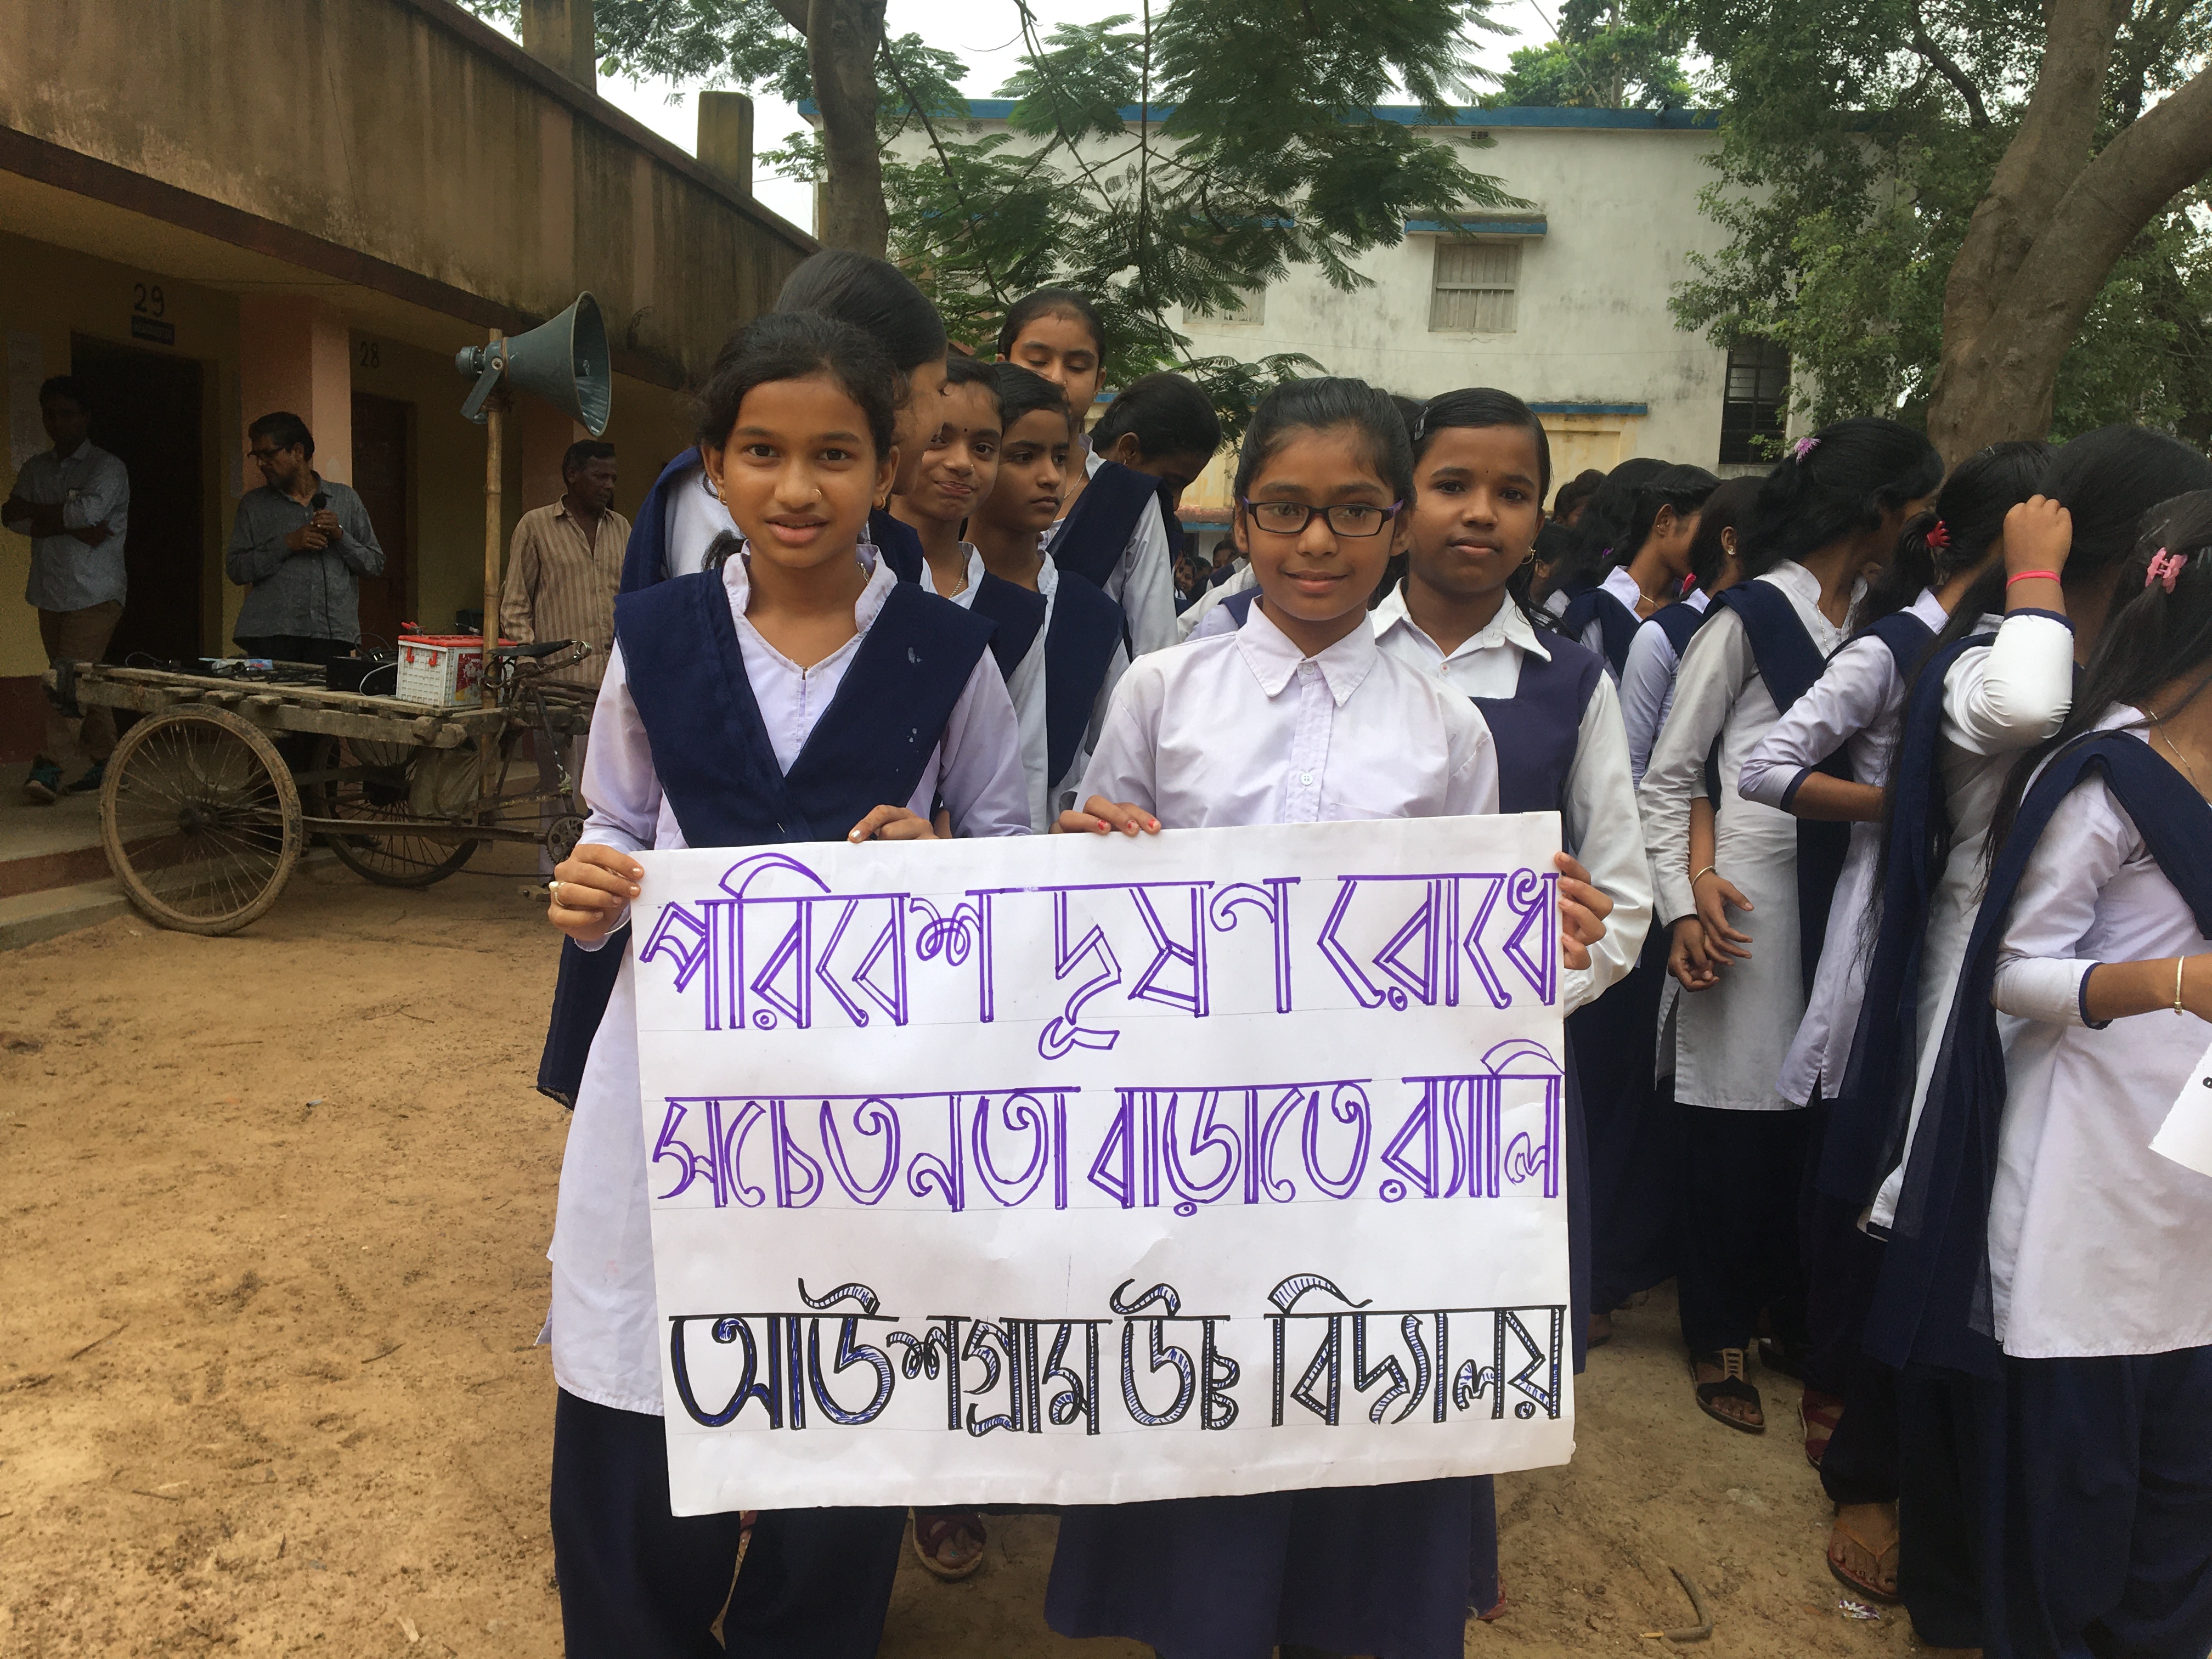 29
28
পরিবেশ দূষণ রোধে
সচেতনতা বাড়াতে র‍্যালি
আউশগ্রাম উচ্চ বিদ্যালয়